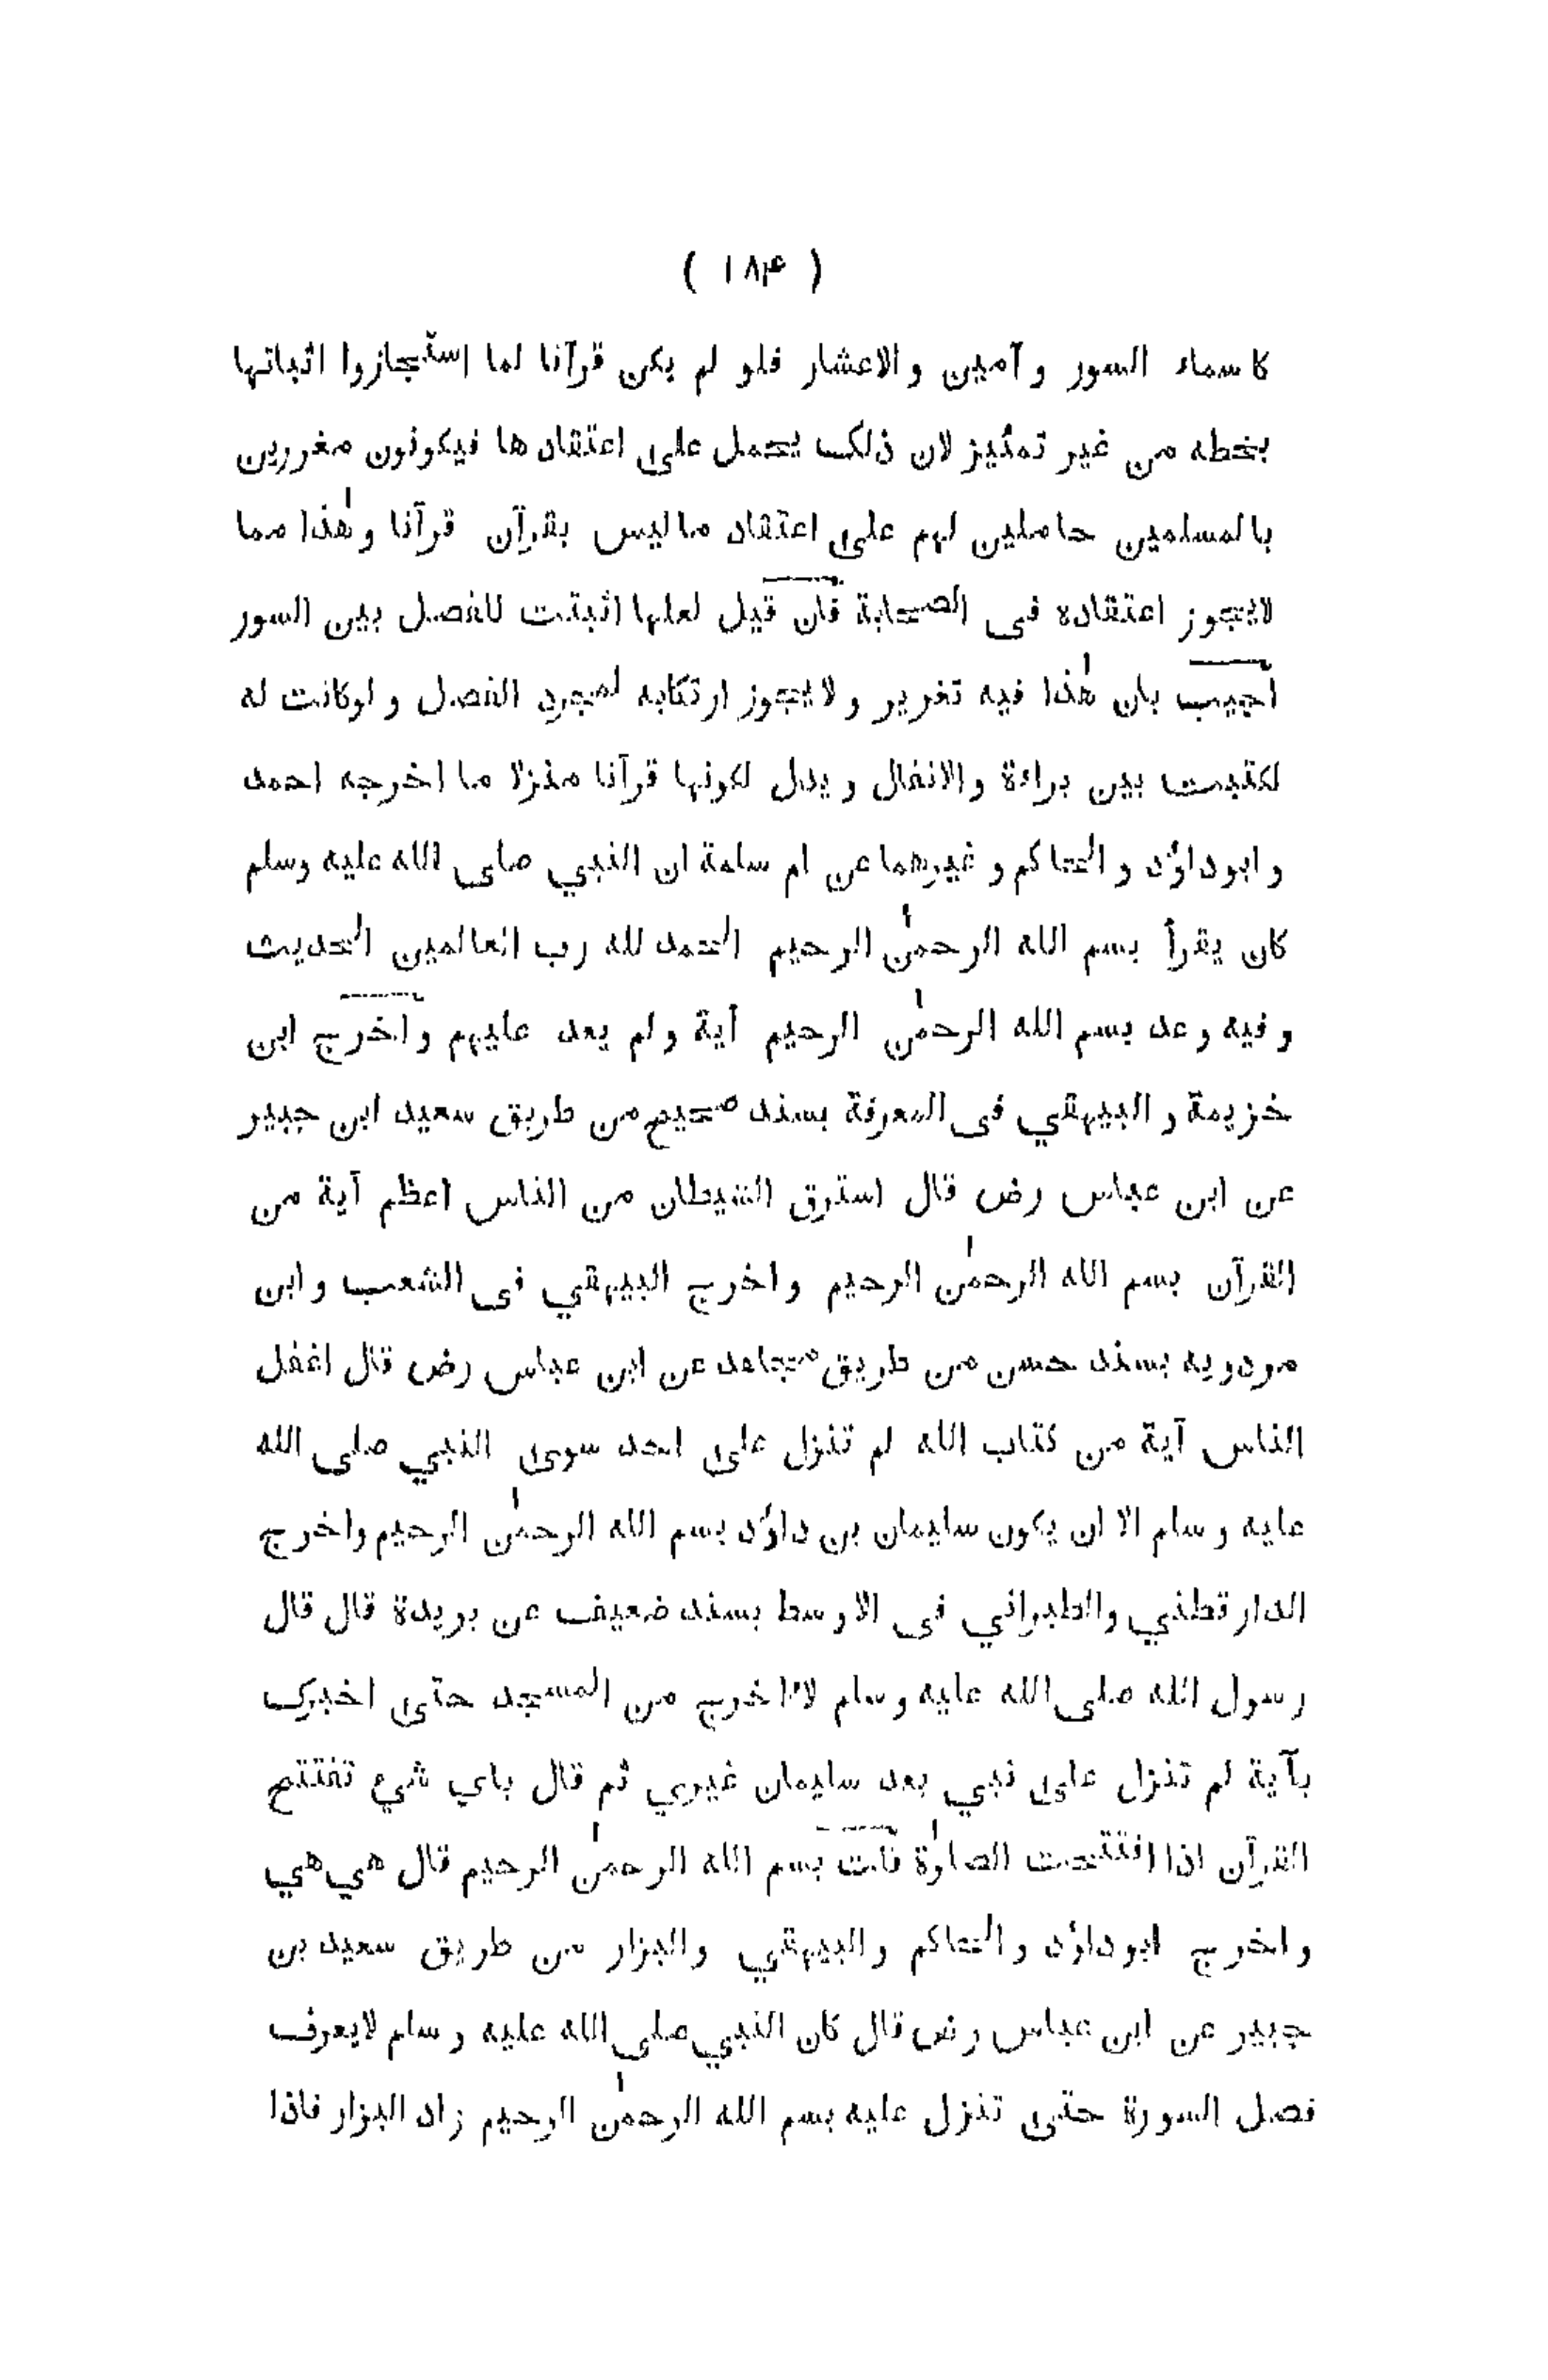 ( ١٨۴ )
كاسماء السور و آمين والاعشار فلو لم يكن قرآنا لما استجازوا اثباتها
بخطه من غير تمئيز لان ذلك يحمل على اعتقاد ها فيكونون مغررين
بالمسلمين حاملين لهم على اعتقاد ماليس بقرآن قرآنا وهٰذا مما
لايجوز اعتقاده فى الصحابة فان قيل لعلها اثبتت للفصل بين السور
اجيب بان هٰذا فيه تغرير ولايجوز ارتكابه لمجرد الفصل و لوكانت له
لكتبت بين براءة والانفال و يدل لكونها قرآنا منزلا ما اخرجه احمد
و ابوداؤد و الحاكم و غيرهما عن ام سلمة ان النبي صلى الله عليه وسلم
كان يقرأ بسم الله الرحمٰن الرحيم الحمد لله رب العالمين الحديث
و فيه وعد بسم الله الرحمٰن الرحيم آية ولم يعد عليهم واخرج ابن
خزيمة و البيهقي فى المعرفة بسند صحيح من طريق سعيد ابن جبير
عن ابن عباس رض قال استرق الشيطان من الناس اعظم آية من
القرآن بسم الله الرحمٰن الرحيم و اخرج البيهقي فى الشعب و ابن
مردويه بسند حسن من طريق مجاهد عن ابن عباس رض قال اغفل
الناس آية من كتاب الله لم تنزل على احد سوى النبي صلى الله
عليه و سلم الا ان يكون سليمان بن داؤد بسم الله الرحمٰن الرحيم واخرج
الدار قطني والطبراني فى الاوسط بسند ضعيف عن بريدة قال قال
رسول الله صلى الله عليه وسلم لا اخرج من المسجد حتى اخبرك
بآية لم تنزل على نبي بعد سليمان غيري ثم قال باي شيء تفتتح
القرآن اذا افتتحت الصلوٰة قلت بسم الله الرحمٰن الرحيم قال هي هي
و اخرج ابوداؤد و الحاكم والبيهقي والبزار من طريق سعيد بن
جبير عن ابن عباس رض قال كان النبي صلى الله عليه و سلم لايعرف
فصل السورة حتى تنزل عليه بسم الله الرحمٰن الرحيم زاد البزار فاذا